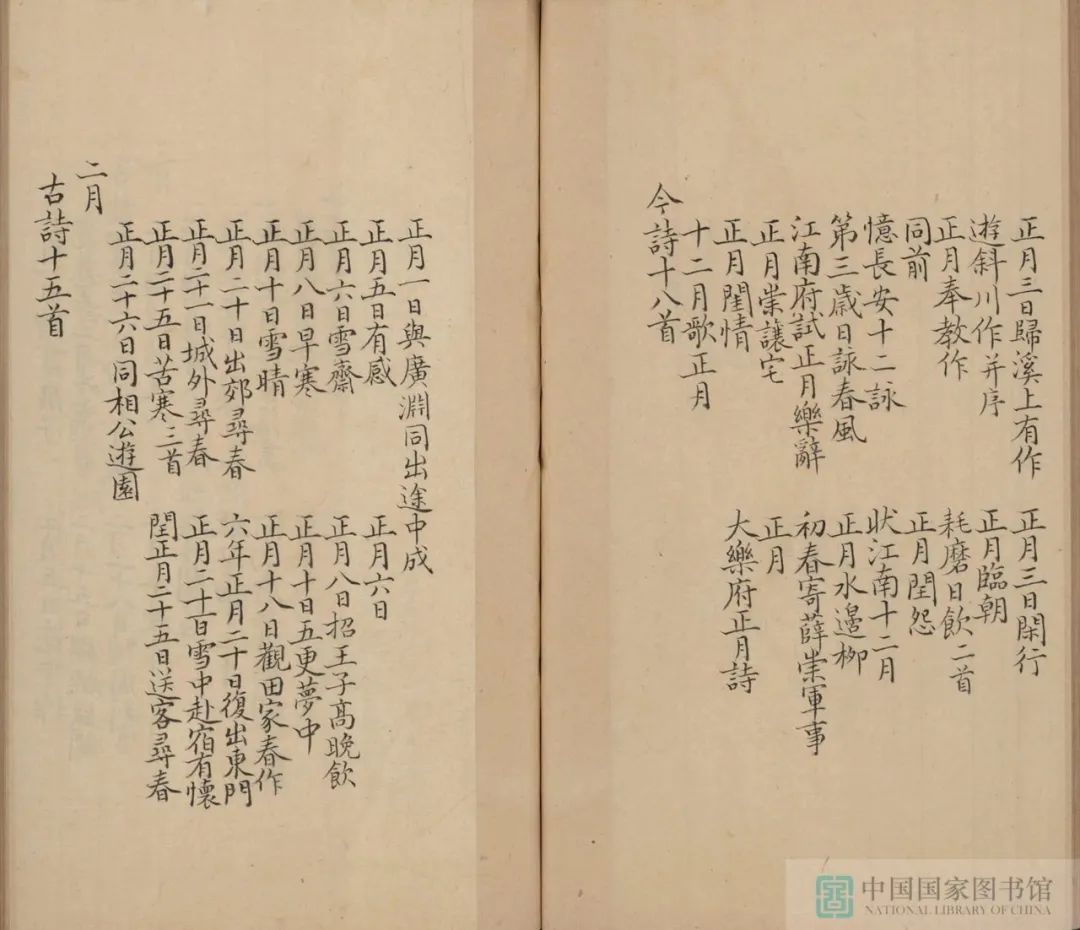 正月三日歸溪上有作 正月三日閑行
遊斜川作并序 正月臨朝
正月奉教作 耗磨日飲二首
同前 正月閨怨
憶長安十二詠 狀江南十二月
第三歲日詠春風 正月水邊柳
江南府試正月樂辭 初春寄薛崇軍事
正月崇讓宅 正月
正月閨情 大樂府正月詩
十二月歌正月
今詩十八首
正月一日與廣淵同出途中成
正月五日有感 正月六日
正月六日雪齋 正月八日招王子高晚飲
正月八日早寒 正月十日五更夢中
正月十日雪晴 正月十八日觀田家春作
正月二十日出郊尋春 六年正月二十日復出東門
正月二十一日城外尋春 正月二十日雪中赴宿有懷
正月二十五日苦寒三首 閏正月二十五日送客尋春
正月二十六日同相公遊園
二月
古詩十五首
中国国家图书馆
NATIONAL LIBRARY OF CHINA